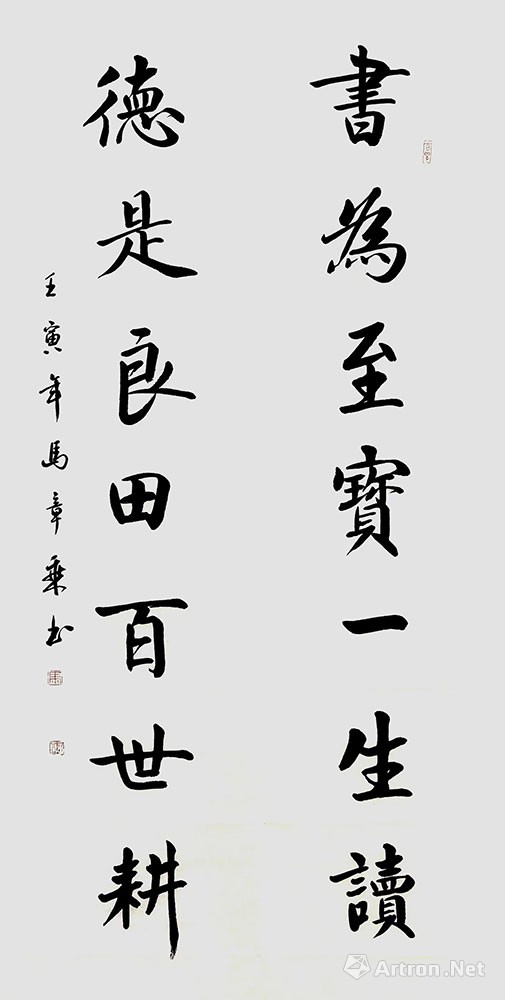 書為至寶一生讀
德是良田百世耕
壬寅年馬章乘书
Artron.Net